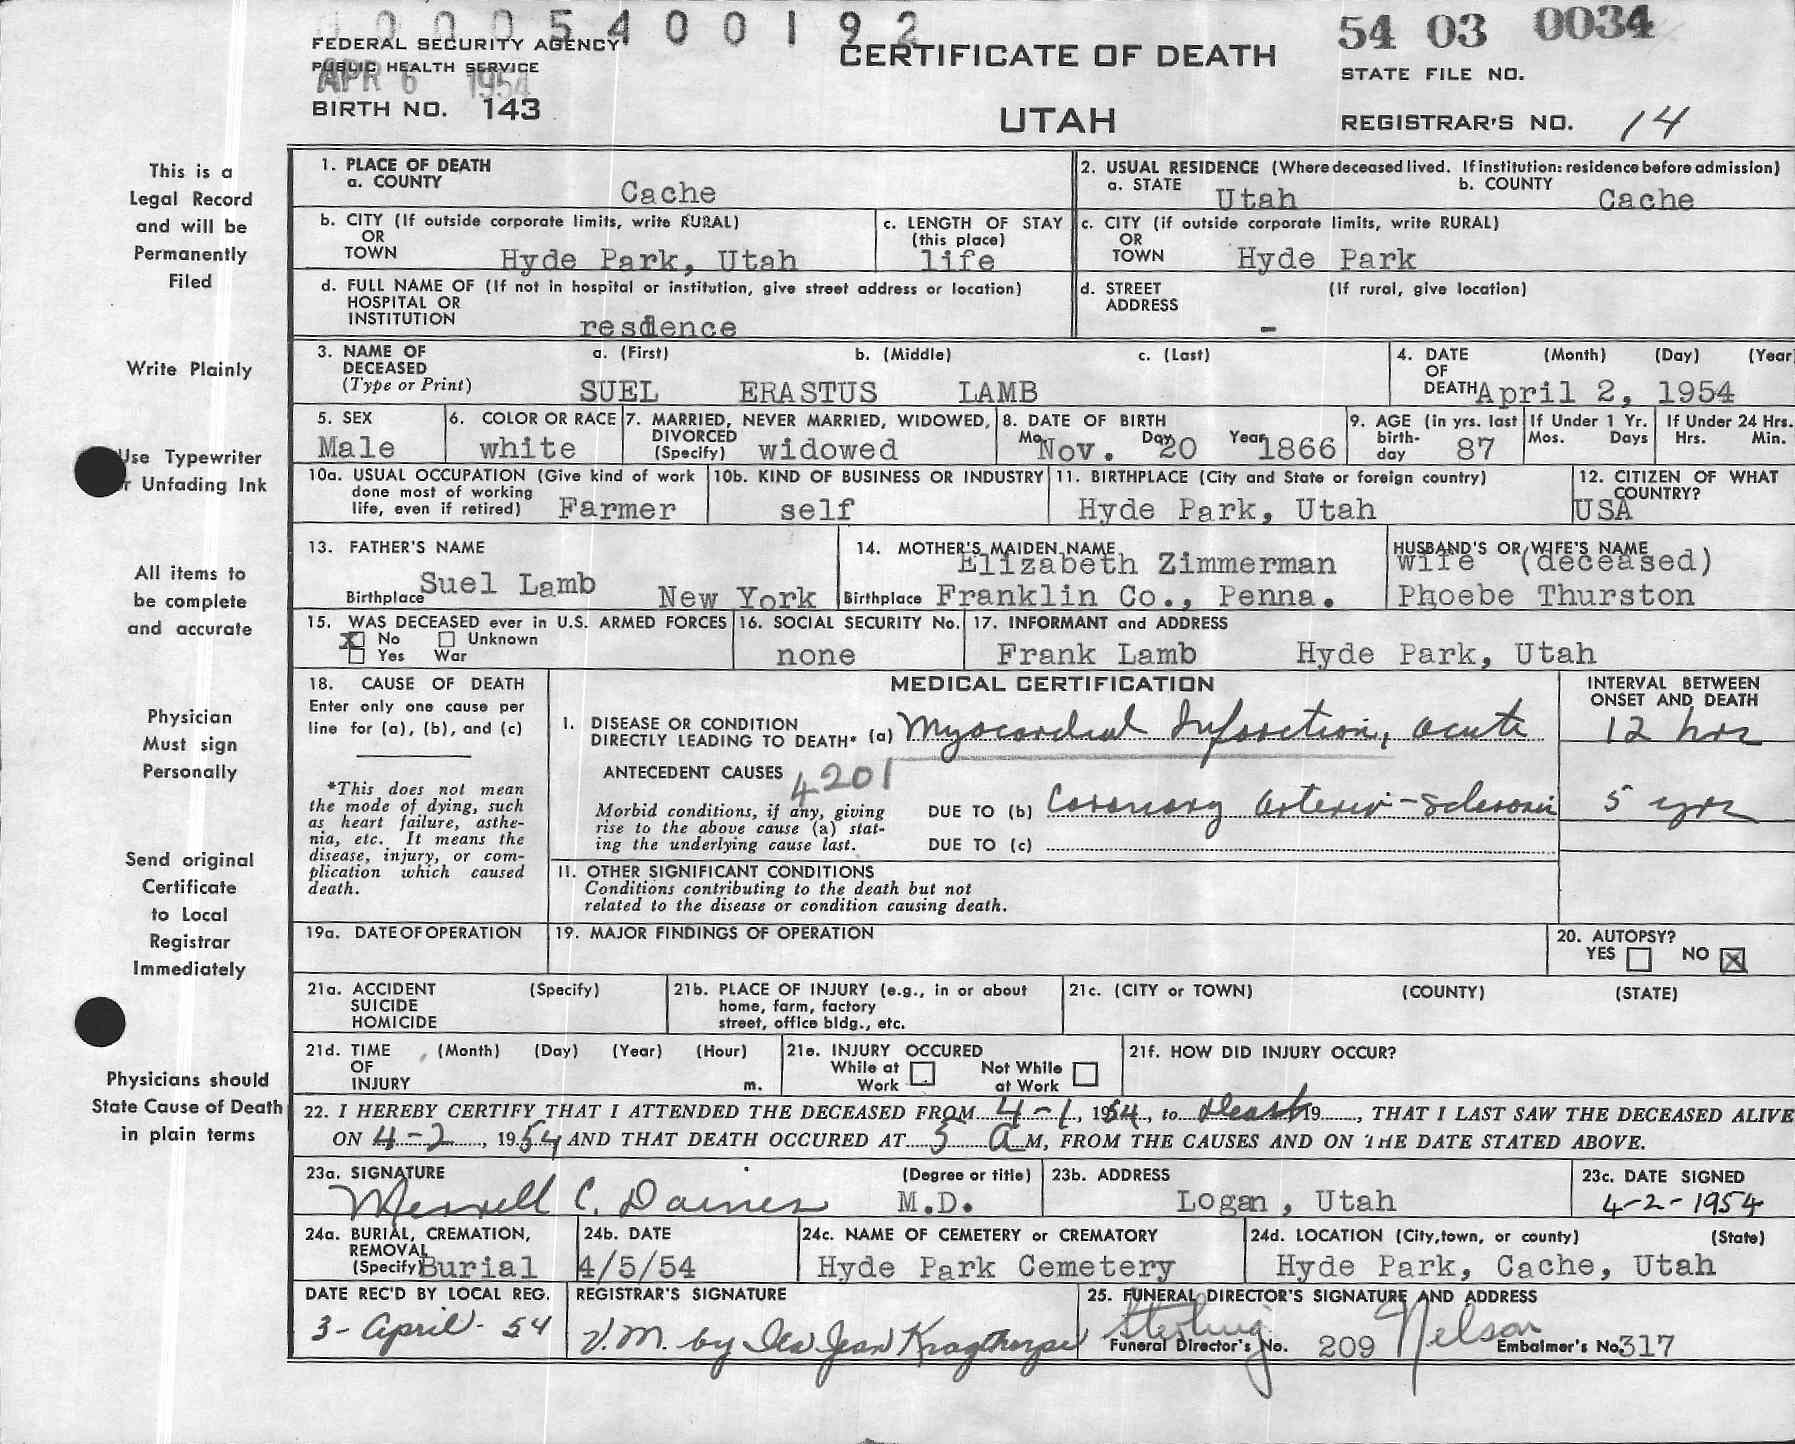 0005400192
54 03 0034
FEDERAL SECURITY AGENCY
CERTIFICATE OF DEATH
PUBLIC HEALTH SERVICE
APR 6 1954
STATE FILE NO.
BIRTH NO. 143
UTAH
REGISTRAR'S NO. 14
This is a
Legal Record
and will be
Permanently
Filed
Write Plainly
Use Typewriter
r Unfading Ink
All items to
be complete
and accurate
Physician
Must sign
Personally
Send original
Certificate
to Local
Registrar
Immediately
Physicians should
State Cause of Death
in plain terms
1. PLACE OF DEATH
a. COUNTY Cache
2. USUAL RESIDENCE (Where deceased lived. If institution: residence before admission)
a. STATE Utah b. COUNTY Cache
b. CITY (If outside corporate limits, write RURAL)
OR
TOWN Hyde Park, Utah
c. LENGTH OF STAY
(this place)
life
c. CITY (if outside corporate limits, write RURAL)
OR
TOWN Hyde Park
d. FULL NAME OF (If not in hospital or institution, give street address or location)
HOSPITAL OR
INSTITUTION resdence
d. STREET (If rural, give location)
ADDRESS -
3. NAME OF a. (First) b. (Middle) c. (Last)
DECEASED
(Type or Print) SUEL ERASTUS LAMB
4. DATE (Month) (Day) (Year
OF
DEATH April 2, 1954
5. SEX
Male
6. COLOR OR RACE
white
7. MARRIED, NEVER MARRIED, WIDOWED,
DIVORCED
(Specify) widowed
8. DATE OF BIRTH
Mo. Nov. Day 20 Year 1866
9. AGE (in yrs. last
birth-
day 87
If Under 1 Yr.
Mos. Days
If Under 24 Hrs.
Hrs. Min.
10a. USUAL OCCUPATION (Give kind of work
done most of working
life, even if retired) Farmer
10b. KIND OF BUSINESS OR INDUSTRY
self
11. BIRTHPLACE (City and State or foreign country)
Hyde Park, Utah
12. CITIZEN OF WHAT
COUNTRY?
USA
13. FATHER'S NAME
Suel Lamb
Birthplace New York
14. MOTHER'S MAIDEN NAME
Elizabeth Zimmerman
Birthplace Franklin Co., Penna.
HUSBAND'S OR WIFE'S NAME
wife (deceased)
Phoebe Thurston
15. WAS DECEASED ever in U.S. ARMED FORCES
X No Unknown
Yes War
16. SOCIAL SECURITY No.
none
17. INFORMANT and ADDRESS
Frank Lamb Hyde Park, Utah
18. CAUSE OF DEATH
Enter only one cause per
line for (a), (b), and (c)
*This does not mean
the mode of dying, such
as heart failure, asthe-
nia, etc. It means the
disease, injury, or com-
plication which caused
death.
MEDICAL CERTIFICATION
INTERVAL BETWEEN
ONSET AND DEATH
I. DISEASE OR CONDITION
DIRECTLY LEADING TO DEATH* (a) Myocardial Infarction, acute 12 hrs
ANTECEDENT CAUSES 4201
Morbid conditions, if any, giving
rise to the above cause (a) stat-
ing the underlying cause last.
DUE TO (b) Coronary arterio-sclerosis 5 yrs
DUE TO (c)
II. OTHER SIGNIFICANT CONDITIONS
Conditions contributing to the death but not
related to the disease or condition causing death.
19a. DATE OF OPERATION
19. MAJOR FINDINGS OF OPERATION
20. AUTOPSY?
YES NO X
21a. ACCIDENT (Specify)
SUICIDE
HOMICIDE
21b. PLACE OF INJURY (e.g., in or about
home, farm, factory
street, office bldg., etc.
21c. (CITY or TOWN) (COUNTY) (STATE)
21d. TIME (Month) (Day) (Year) (Hour)
OF
INJURY m.
21e. INJURY OCCURED
While at Work
Not While at Work
21f. HOW DID INJURY OCCUR?
22. I HEREBY CERTIFY THAT I ATTENDED THE DECEASED FROM 4-1, 1954, to death 19....., THAT I LAST SAW THE DECEASED ALIVE
ON 4-2, 1954 AND THAT DEATH OCCURED AT 5 a M, FROM THE CAUSES AND ON THE DATE STATED ABOVE.
23a. SIGNATURE (Degree or title)
Merrell C. Daines M.D.
23b. ADDRESS
Logan, Utah
23c. DATE SIGNED
4-2-1954
24a. BURIAL, CREMATION,
REMOVAL
(Specify) Burial
24b. DATE
4/5/54
24c. NAME OF CEMETERY or CREMATORY
Hyde Park Cemetery
24d. LOCATION (City, town, or county) (State)
Hyde Park, Cache, Utah
DATE REC'D BY LOCAL REG.
3-April-54
REGISTRAR'S SIGNATURE
V.M. by Ila Jean Kragthorpe
25. FUNERAL DIRECTOR'S SIGNATURE AND ADDRESS
Sterling Nelson
Funeral Director's No. 209 Embalmer's No. 317